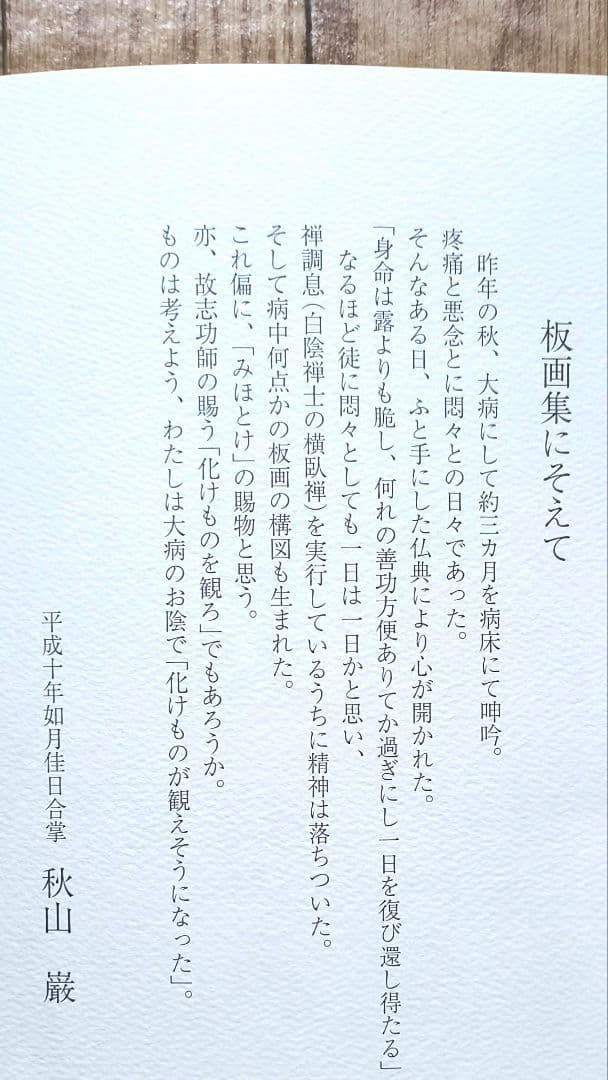 板画集にそえて
昨年の秋、大病にして約三カ月を病床にて呻吟。
疼痛と悪念とに悶々との日々であった。
そんなある日、ふと手にした仏典により心が開かれた。
「身命は露よりも脆し、何れの善功方便ありてか過ぎにし一日を復び還し得たる」
なるほど徒に悶々としても一日は一日かと思い、
禅調息（白陰禅士の横臥禅）を実行しているうちに精神は落ちついた。
そして病中何点かの板画の構図も生まれた。
これ偏に、「みほとけ」の賜物と思う。
亦、故志功師の賜う「化けものを観ろ」でもあろうか。
ものは考えよう、わたしは大病のお陰で「化けものが観えそうになった」。
平成十年如月佳日合掌 秋山 巌